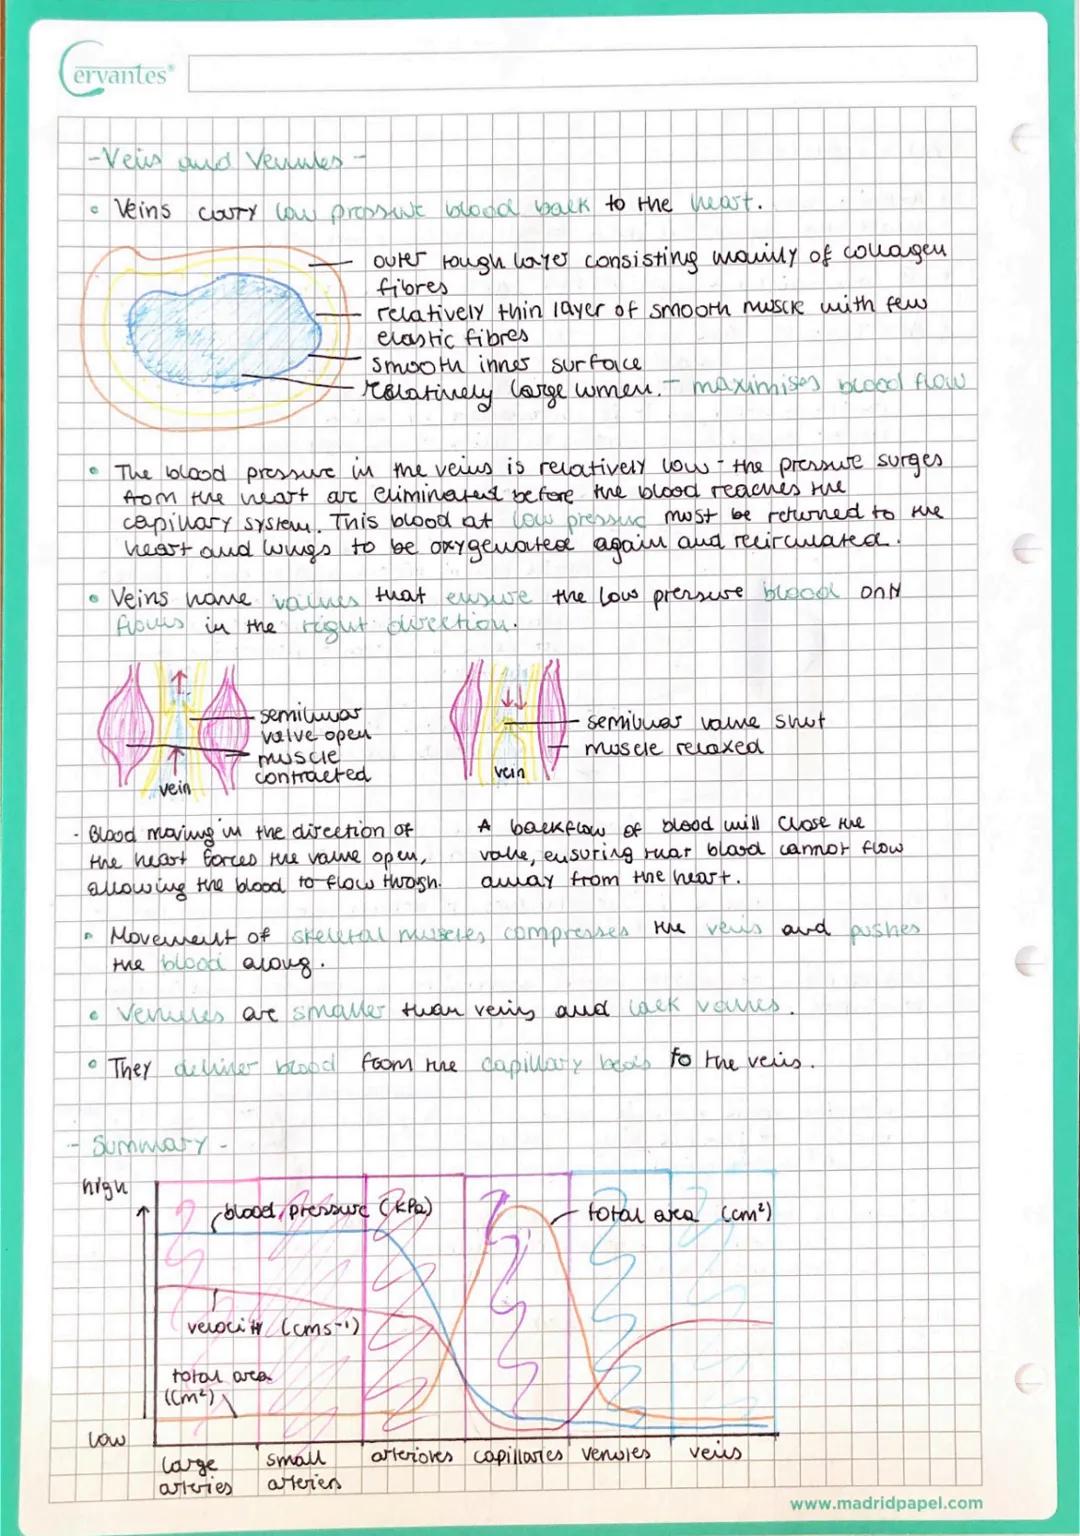 Cervantes®
- Veins and Venules -
• Veins carry low pressure blood back to the heart.
outer tough layer consisting mainly of collagen
fibres
relatively thin layer of smooth muscle with few
elastic fibres
smooth inner surface
relatively large lumen. - maximises blood flow
• The blood pressure in the veins is relatively low - the pressure surges
from the heart are eliminated before the blood reaches the
capillary system. This blood at low pressure must be returned to the
heart and lungs to be oxygenated again and recirculated.
• Veins have valves that ensure the low pressure blood only
flows in the right direction.
semilunar
valve open
muscle
contracted
vein
semilunar valve shut
muscle relaxed
vein
- Blood moving in the direction of
the heart forces the valve open,
allowing the blood to flow through.
A backflow of blood will close the
valve, ensuring that blood cannot flow
away from the heart.
• Movement of skeletal muscles compresses the veins and pushes
the blood along.
• Venules are smaller than veins and lack valves.
• They deliver blood from the capillary beds to the veins.
- Summary -
high
blood pressure (kPa)
total area (cm²)
velocity (cms⁻¹)
total area
(cm²)
low
large
arteries
small
arteries
arterioles
capillaries
venules
veins
www.madridpapel.com